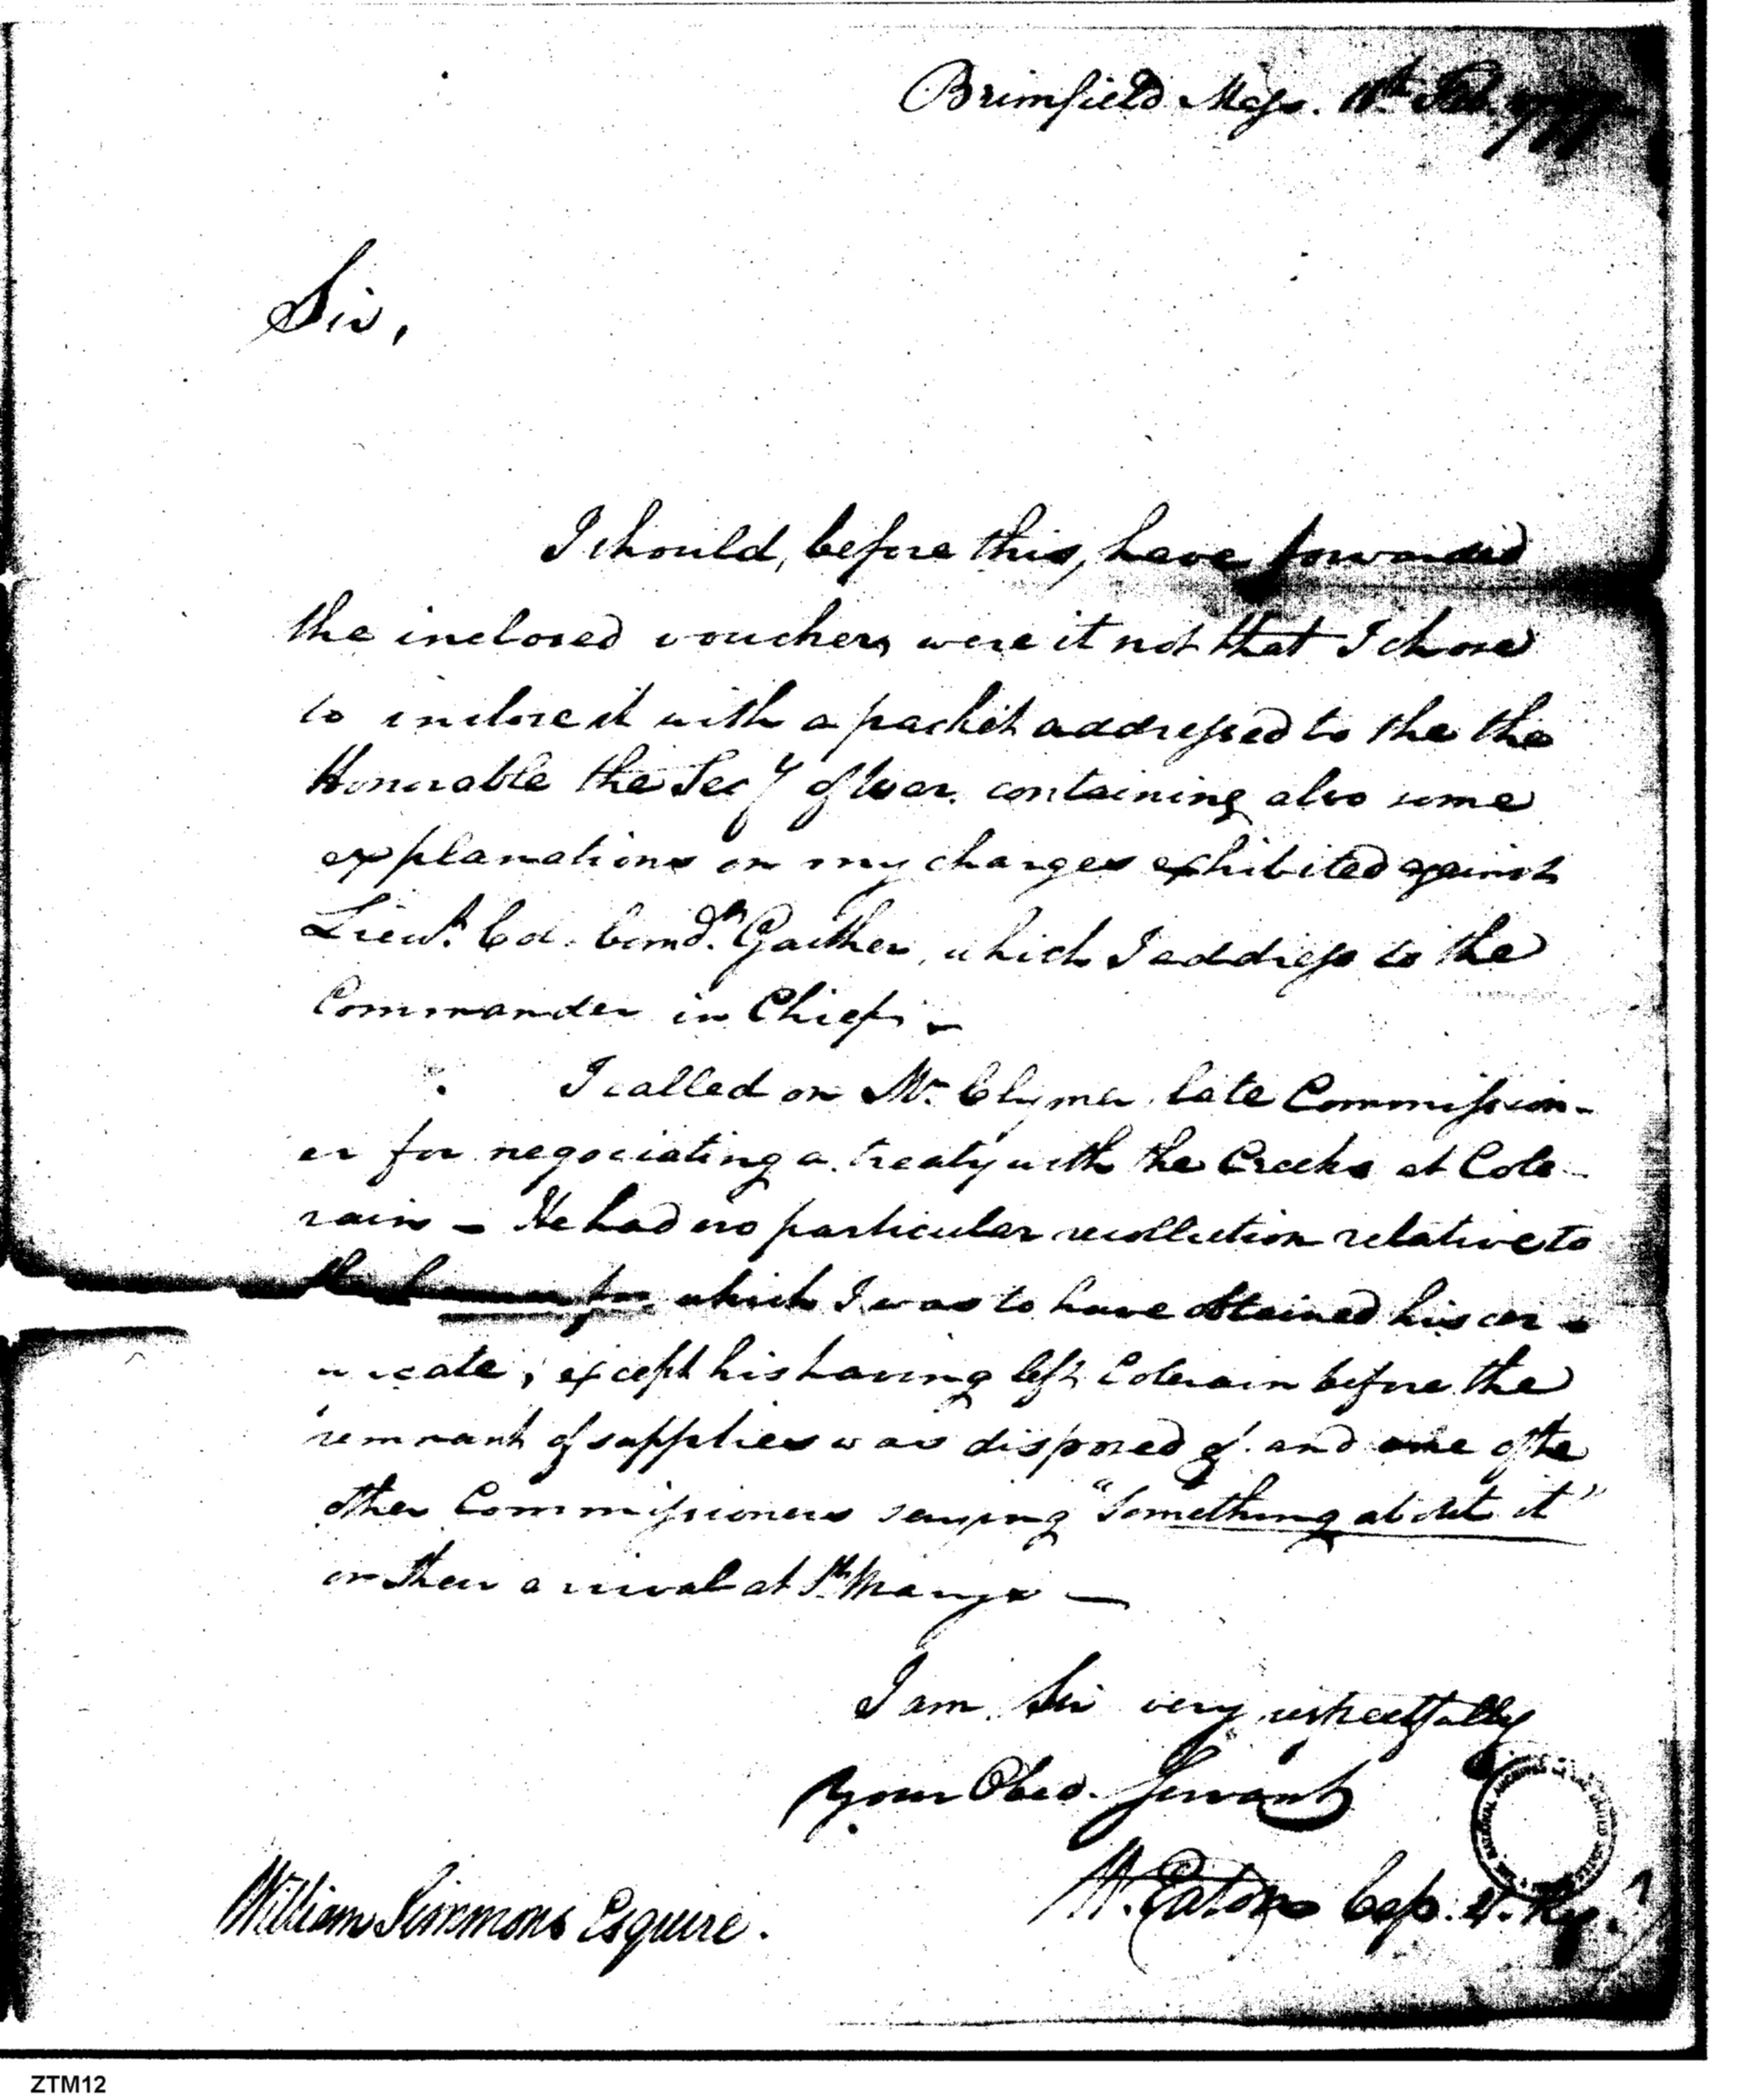 Brimfield Mass. 11th Feb. 1797
Sir,
I should, before this, have forwarded
the inclosed vouchers were it not that I chose
to inclose it with a packet addressed to the the
Honorable the Secy of War. containing also some
explanations on my charges exhibited against
Lieut. Col. Comdt. Gaither, which I address to the
Commander in Chief. —
I called on Mr. Clymer late Commission-
er for negociating a treaty with the Creeks at Cole-
rain — He had no particular recollection relative to
the for which I was to have obtained his cer-
icate, except his having left Colerain before the
remnant of supplies was disposed of. and one of the
other Commissioners saying "Something about it"
on their arrival at St. Marys —
I am, Sir very respectfully
your Obed. Servant
W. Eaton Cap. 4. Reg.
William Simmons Esquire.
ZTM12